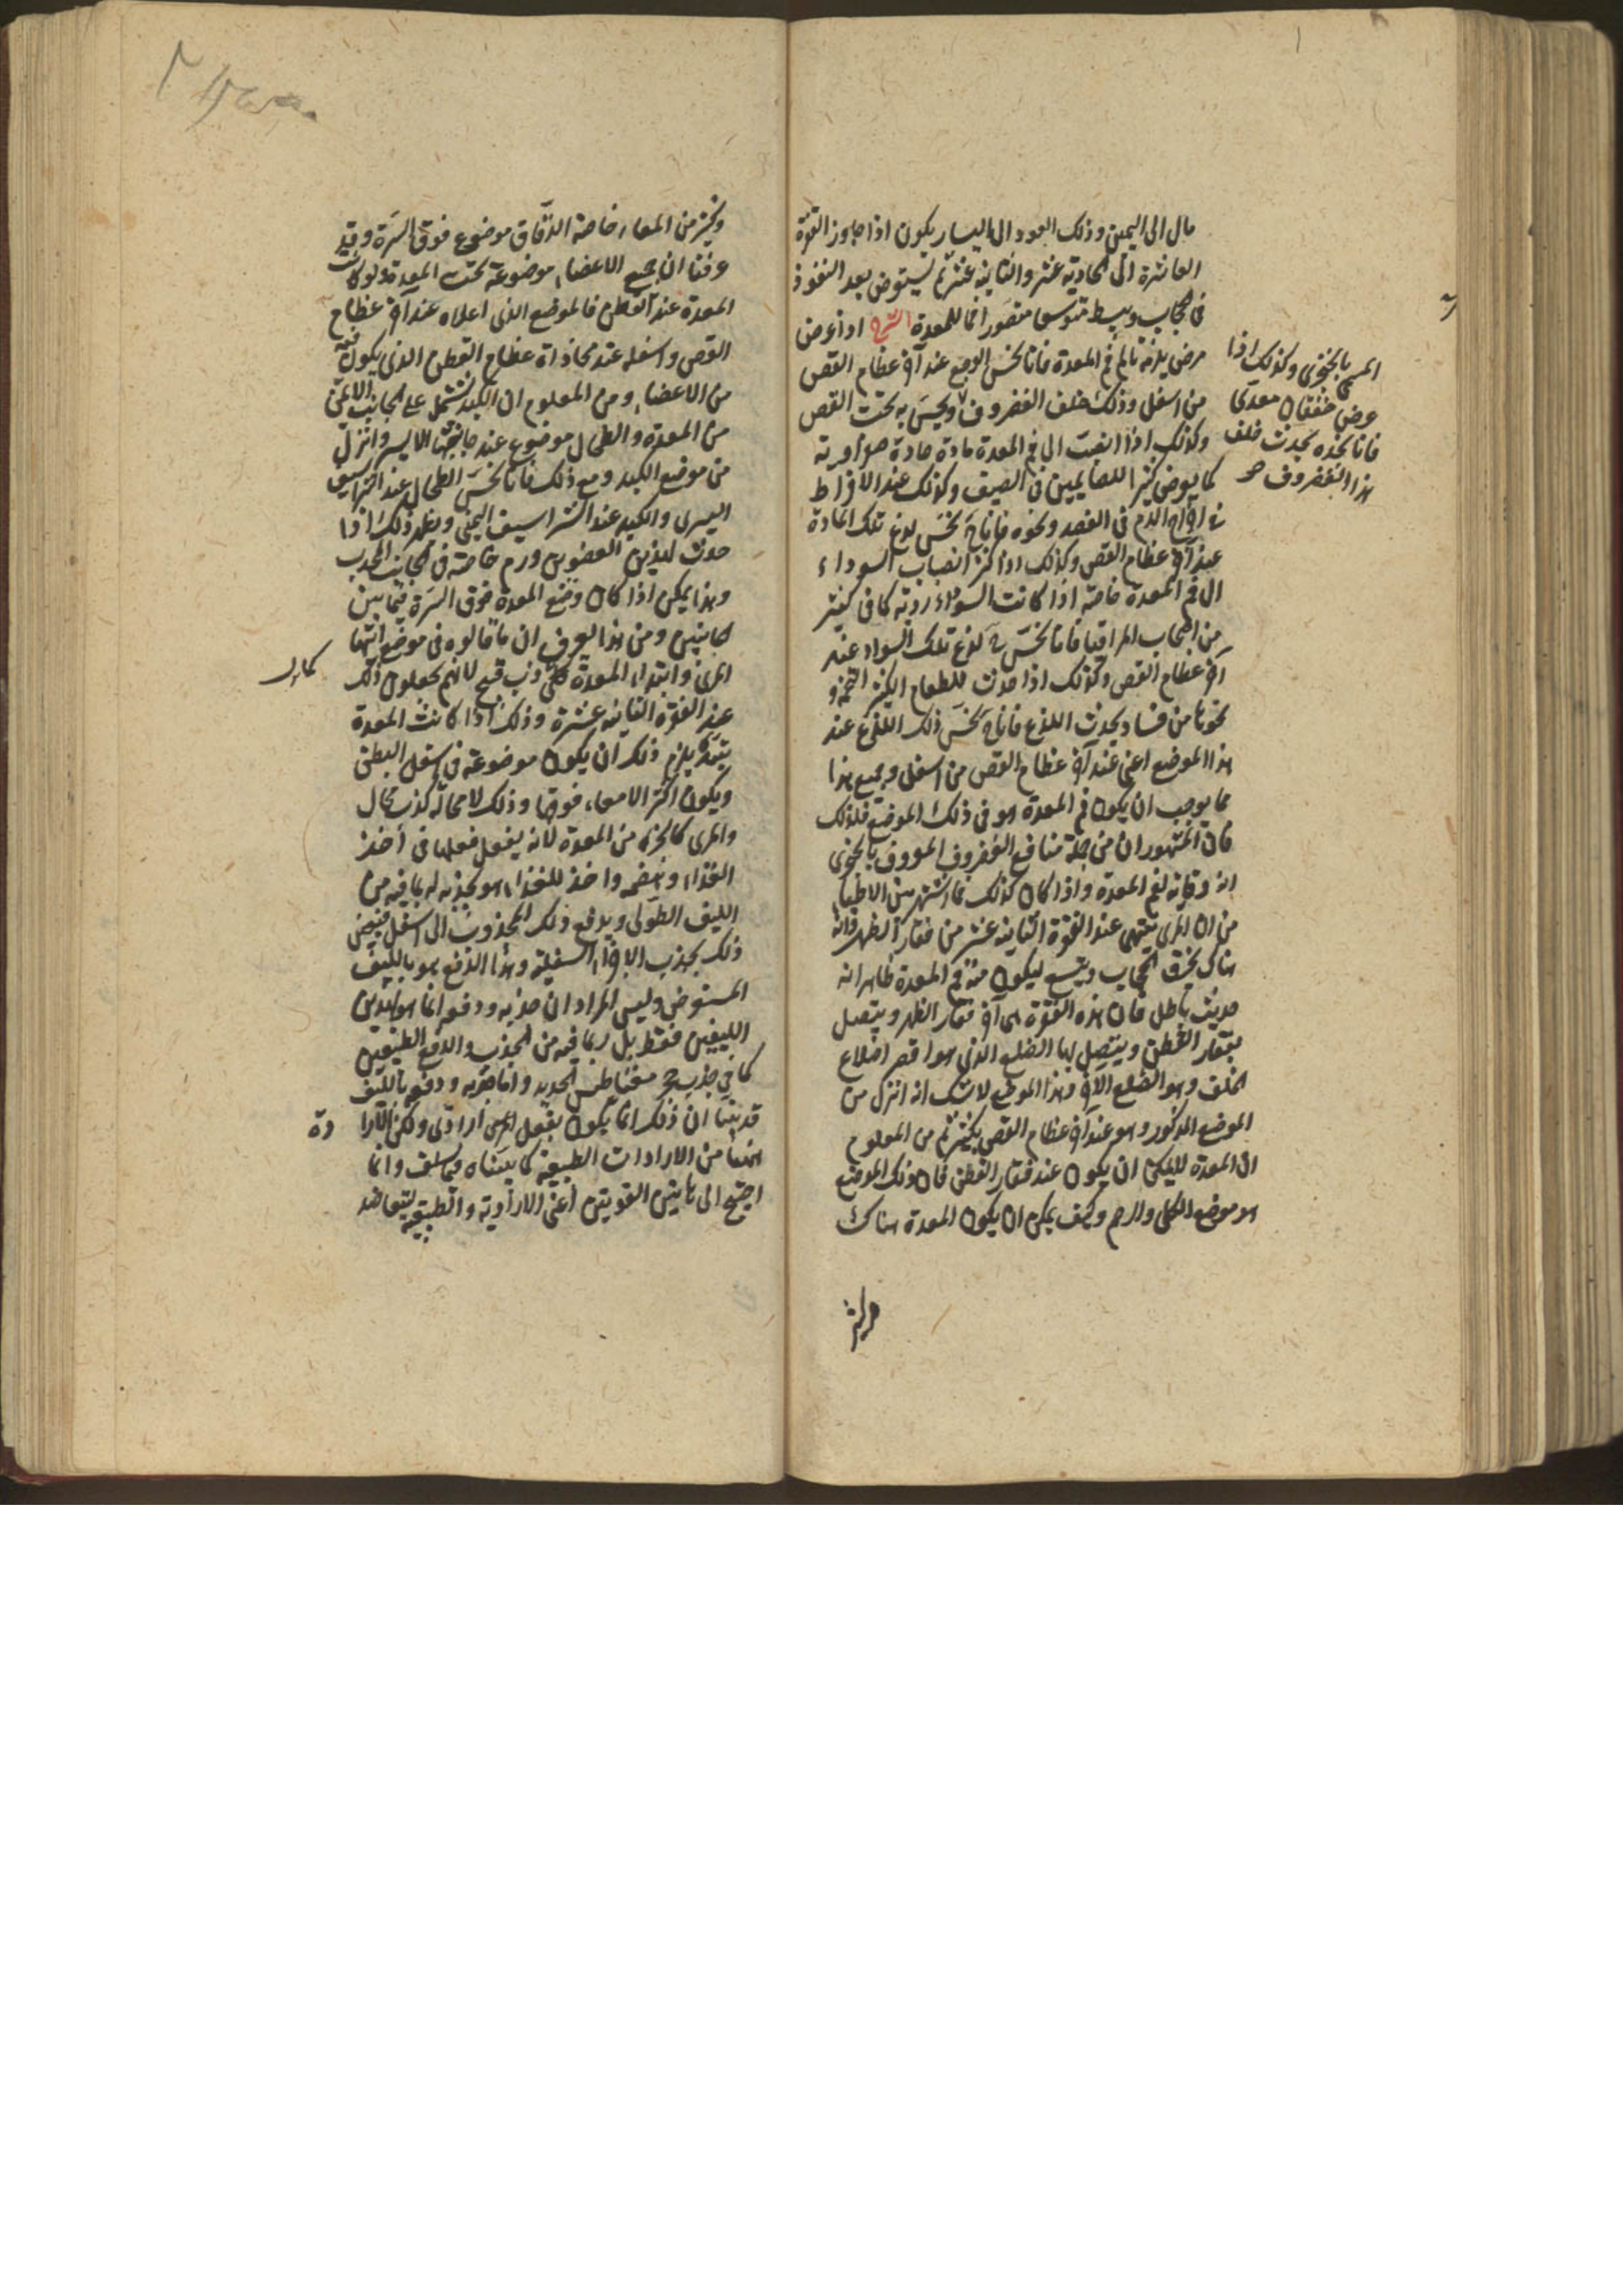 مال الى اليمين وذلك العود الى اليسار يكون اذا جاوز الفقرة
العاشرة الى الحادية عشر والثانية عشر ثم يستعرض بعد النفوذ
فى الحجاب وينبسط متوسعا متصورا فما للمعدة الشرح اذا عرض
مرض يلزمه تألم فم المعدة فانا نحس الوجع عند آخر عظام القص
من اسفل وذلك خلف الغضروف ويحس به تحت القص
المسمى بالخنجرى وكذلك اذا
عرض خفقان معدى
فانا نجده يحدث خلف
هذا الغضروف صح
وكذلك اذا انصبت الى فم المعدة مادة حادة صفراوية
كما يعرض كثيرا للصائمين فى الصيف وكذلك عند الافراط
فى اخراج الدم فى الفصد ونحوه فانا نحس لذع تلك المادة
عند آخر عظام القص وكذلك اذا كثر انصباب السوداء
الى فم المعدة خاصة اذا كانت السوداء ردية كما فى كثير
من اصحاب المراقيا فانا نحس لذع تلك السوداء عند
آخر عظام القص وكذلك اذا حدث للطعام الكثير التخمة و
نحوها من فساد يحدث اللذع فانا نحس ذلك اللذع عند
هذا الموضع اعنى عند آخر عظام القص من اسفل وجميع هذا
مما يوجب ان يكون فم المعدة هو فى ذلك الموضع فلذلك
فان المشهور ان من جملة منافع الغضروف المعروف بالخنجرى
انه وقاية لفم المعدة واذا كان كذلك فما اشتهر بين الاطباء
من ان المرى ينتهى عند الفقرة الثانية عشر من فقار الظهر فانه
هناك يخرق الحجاب ويتسع ليكون منه فم المعدة ظاهر انه
حديث باطل فان هذه الفقرة هى آخر فقار الظهر ويتصل
بفقار القطن ويتصل بها الضلع الذى هو اقصر اضلاع
الخلف وهو الضلع الآخر وهذا الموضع لا شك انه انزل من
الموضع المذكور وهو عند آخر عظام القص بكثير ثم من المعلوم
ان المعدة لا يمكن ان يكون عند فقار القطن فان ذلك الموضع
هو موضع الكلى والرحم وكيف يمكن ان يكون المعدة هناك
وكثير من المعاء خاصة الدقاق موضوع فوق السرة وقد
عرفنا ان جميع الاعضاء موضوعة تحت المعدة ولو كانت
المعدة عند القطن فالموضع الذى اعلاه عند آخر عظام
القص واسفله عند محاذاة عظام القطن الذى يكون فيه
من الاعضاء ومن المعلوم ان الكبد تشتمل على الجانب الايمن
من المعدة والطحال موضوع عند جانبها الايسر وانزل
من موضع الكبد ومع ذلك فانا نحس الطحال عند الشراسيف
اليسرى والكبد عند الشراسيف اليمنى ويظهر ذلك اذا
حدث لهذين العضوين ورم خاصة فى الجانب المحدب
وهذا يمكن اذا كان وضع المعدة فوق السرة فيما بين
الجانبين ومن هذا يعرف ان ما قالوه فى موضع انتهاء
المرى وابتداء المعدة كذب قبيح لانهم يجعلون ذلك
عند الفقرة الثانية عشرة وذلك اذا كانت المعدة
تبتدئ يلزم ذلك ان يكون موضوعة فى اسفل البطن
ويكون اكثر الامعاء فوقها وذلك لا محالة كذب محال
والمرى كالجزء من المعدة لانه يفعل فعلها فى أخذ
الغذاء وهضمه واخذ للغذاء هو بجذبه له بما فيه من
الليف الطولى ويدفع ذلك المجذوب الى اسفل
ذلك بجذب الاجزاء السفلية وهذا الدفع هو بالليف
المستعرض وليس المراد ان جذبه ودفعه انما هو بهذين
الليفين فقط بل ربما فيه من الجذب والدفع الطبيعيين
كما فى جذب حجر مغناطيس الحديد واما جذبه ودفعه بالليف
قد بينا ان ذلك انما يكون بفعل ارادى ولكن الارادة
ههنا من الارادات الطبيعية كما بيناه فيما سلف وانما
احتيج الى هاتين القوتين أعنى الارادية والطبيعية ليتعاضد